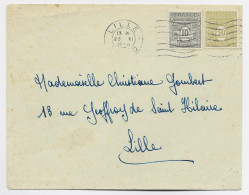 LILLE
Mademoiselle Christiane Jombert
18 rue Geoffroy de Saint Hilaire
Lille